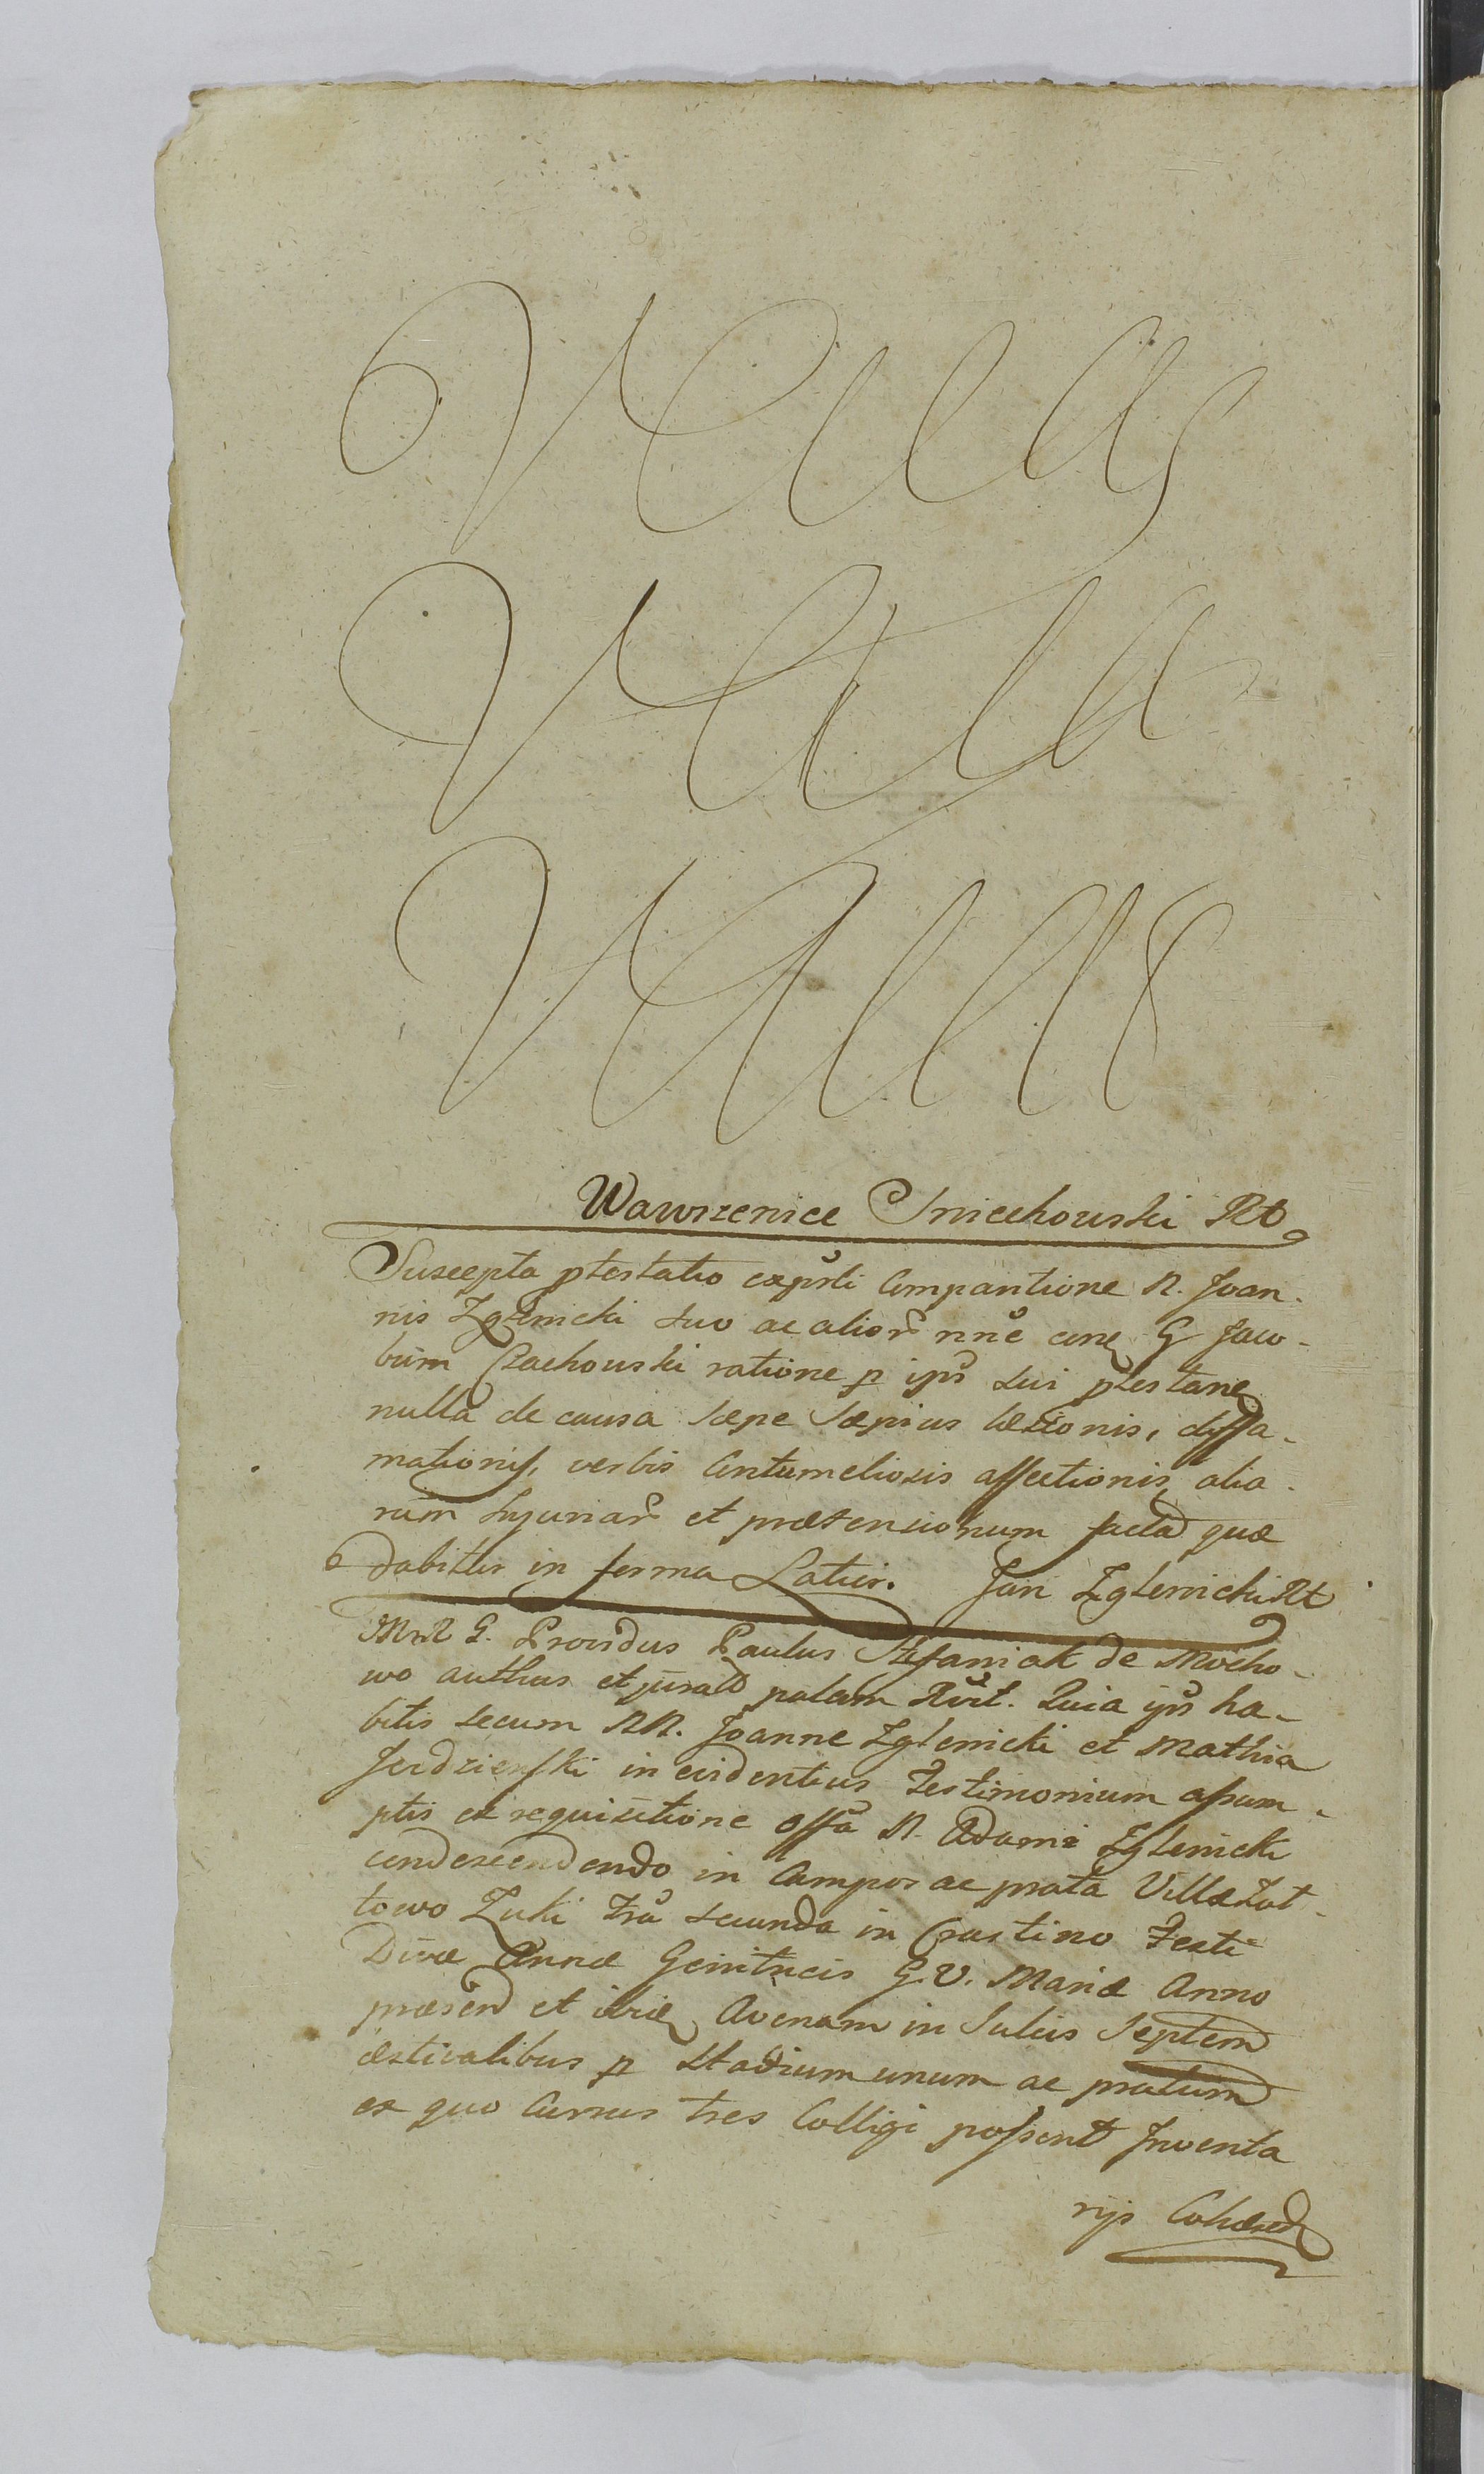 Wawrzeniec Sniechowski Rt
Suscepta ptestatio exprsti Compantione N. Joan-
nis Zglenicki suo ac alior nne cone G Jaco-
bum Czachowski ratione p ips sui ptestane
nulla de causa sæpe sæpius læsionis, diffa-
mationis, verbis Contumeliosis affectionis alia-
rum Injuriar et prætensionum facta quæ
dabitur in forma Latiir. Jan Zglenicki Rt
G. Providus Paulus Stefaniak de Mocho-
wo authus et jurat palam Rvit. Quia ips ha-
bitis secum NN. Joanne Zglenicki et Mathia
in evidentius Testimonium assum-
ptis et requisitione offa N. Adami Zglenicki
condescendendo in Campos ac prata Villæ Zat-
towo Zuki fra secunda in Crastino Festi
Divæ Annæ Genitricis G.V. Mariæ Anno
præsen et Avenam in Sulcis Septem
æstivalibus p stadium unum ac pratum
ex quo Currus tres Colligi possent Inventa
rijs Cohæred